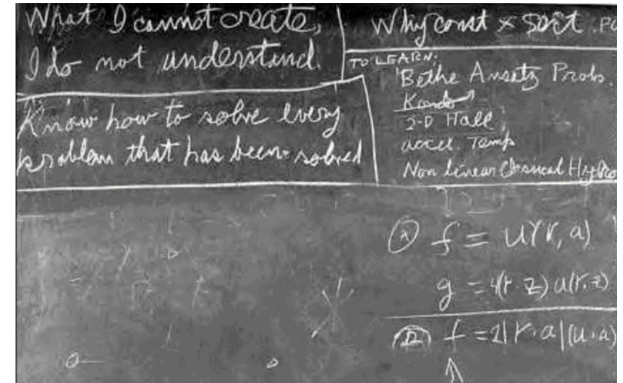 What I cannot create,
I do not understand.
Know how to solve every
problem that has been solved
Why const × sort . PO
TO LEARN:
Bethe Ansatz Probs.
Kondo
2-D Hall
accel. Temp
Non Linear Classical Hydro
f = u(r, a)
g = 4(r·z) u(r, z)
f = 2|r·a|(u·a)